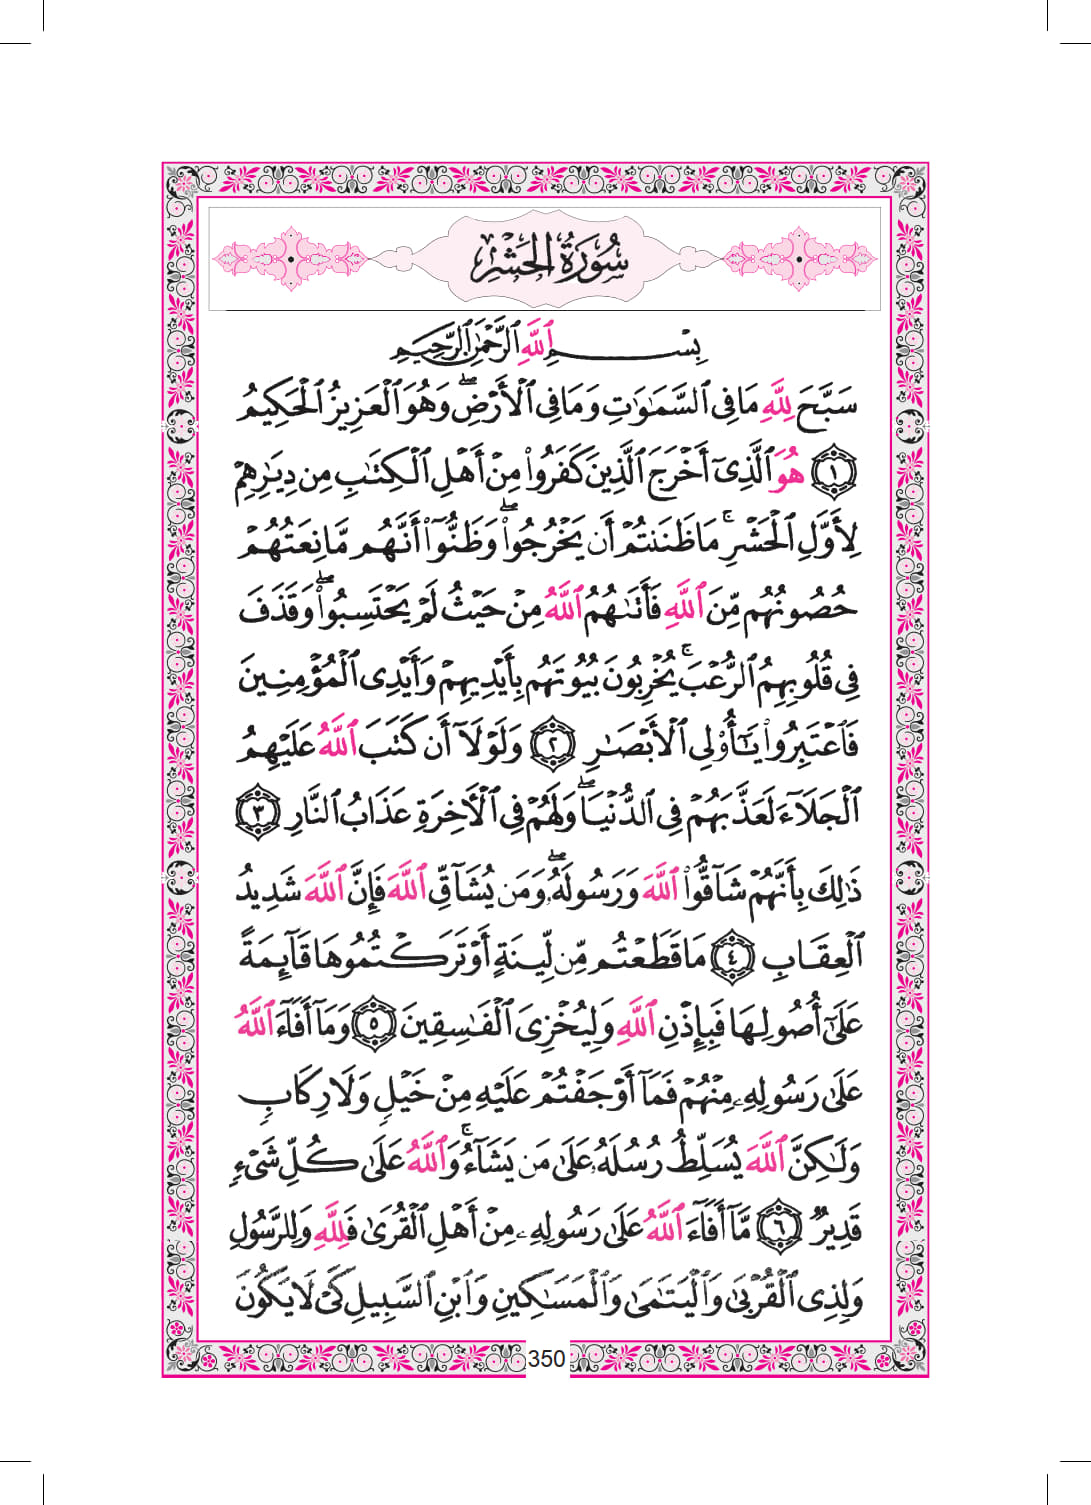 سُورَةُ الحَشْرِ
بِسْمِ ٱللَّهِ ٱلرَّحْمَٰنِ ٱلرَّحِيمِ
سَبَّحَ لِلَّهِ مَا فِى ٱلسَّمَٰوَٰتِ وَمَا فِى ٱلْأَرْضِ ۖ وَهُوَ ٱلْعَزِيزُ ٱلْحَكِيمُ
١ هُوَ ٱلَّذِىٓ أَخْرَجَ ٱلَّذِينَ كَفَرُوا۟ مِنْ أَهْلِ ٱلْكِتَٰبِ مِن دِيَٰرِهِمْ
لِأَوَّلِ ٱلْحَشْرِ ۚ مَا ظَنَنتُمْ أَن يَخْرُجُوا۟ ۖ وَظَنُّوٓا۟ أَنَّهُم مَّانِعَتُهُمْ
حُصُونُهُم مِّنَ ٱللَّهِ فَأَتَىٰهُمُ ٱللَّهُ مِنْ حَيْثُ لَمْ يَحْتَسِبُوا۟ ۖ وَقَذَفَ
فِى قُلُوبِهِمُ ٱلرُّعْبَ ۚ يُخْرِبُونَ بُيُوتَهُم بِأَيْدِيهِمْ وَأَيْدِى ٱلْمُؤْمِنِينَ
فَٱعْتَبِرُوا۟ يَٰٓأُو۟لِى ٱلْأَبْصَٰرِ ٢ وَلَوْلَآ أَن كَتَبَ ٱللَّهُ عَلَيْهِمُ
ٱلْجَلَآءَ لَعَذَّبَهُمْ فِى ٱلدُّنْيَا ۖ وَلَهُمْ فِى ٱلْءَاخِرَةِ عَذَابُ ٱلنَّارِ ٣
ذَٰلِكَ بِأَنَّهُمْ شَآقُّوا۟ ٱللَّهَ وَرَسُولَهُۥ ۖ وَمَن يُشَآقِّ ٱللَّهَ فَإِنَّ ٱللَّهَ شَدِيدُ
ٱلْعِقَابِ ٤ مَا قَطَعْتُم مِّن لِّينَةٍ أَوْ تَرَكْتُمُوهَا قَآئِمَةً
عَلَىٰٓ أُصُولِهَا فَبِإِذْنِ ٱللَّهِ وَلِيُخْزِىَ ٱلْفَٰسِقِينَ ٥ وَمَآ أَفَآءَ ٱللَّهُ
عَلَىٰ رَسُولِهِۦ مِنْهُمْ فَمَآ أَوْجَفْتُمْ عَلَيْهِ مِنْ خَيْلٍ وَلَا رِكَابٍ
وَلَٰكِنَّ ٱللَّهَ يُسَلِّطُ رُسُلَهُۥ عَلَىٰ مَن يَشَآءُ ۚ وَٱللَّهُ عَلَىٰ كُلِّ شَىْءٍ
قَدِيرٌ ٦ مَّآ أَفَآءَ ٱللَّهُ عَلَىٰ رَسُولِهِۦ مِنْ أَهْلِ ٱلْقُرَىٰ فَلِلَّهِ وَلِلرَّسُولِ
وَلِذِى ٱلْقُرْبَىٰ وَٱلْيَتَٰمَىٰ وَٱلْمَسَٰكِينِ وَٱبْنِ ٱلسَّبِيلِ كَىْ لَا يَكُونَ
350